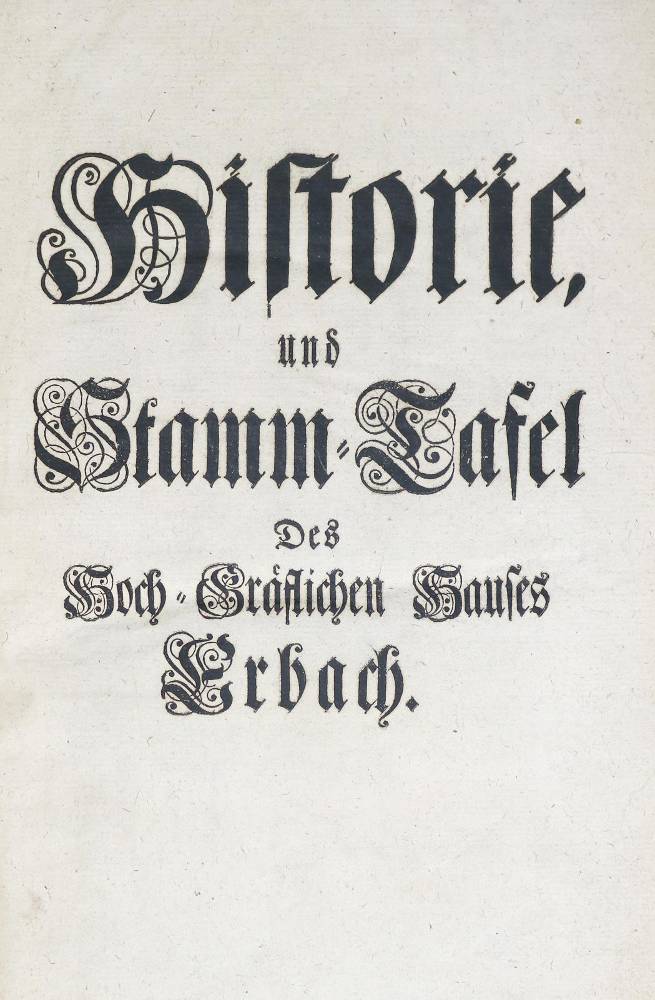 Historie,
und
Stamm-Tafel
Des
Hoch-Gräflichen Hauses
Erbach.